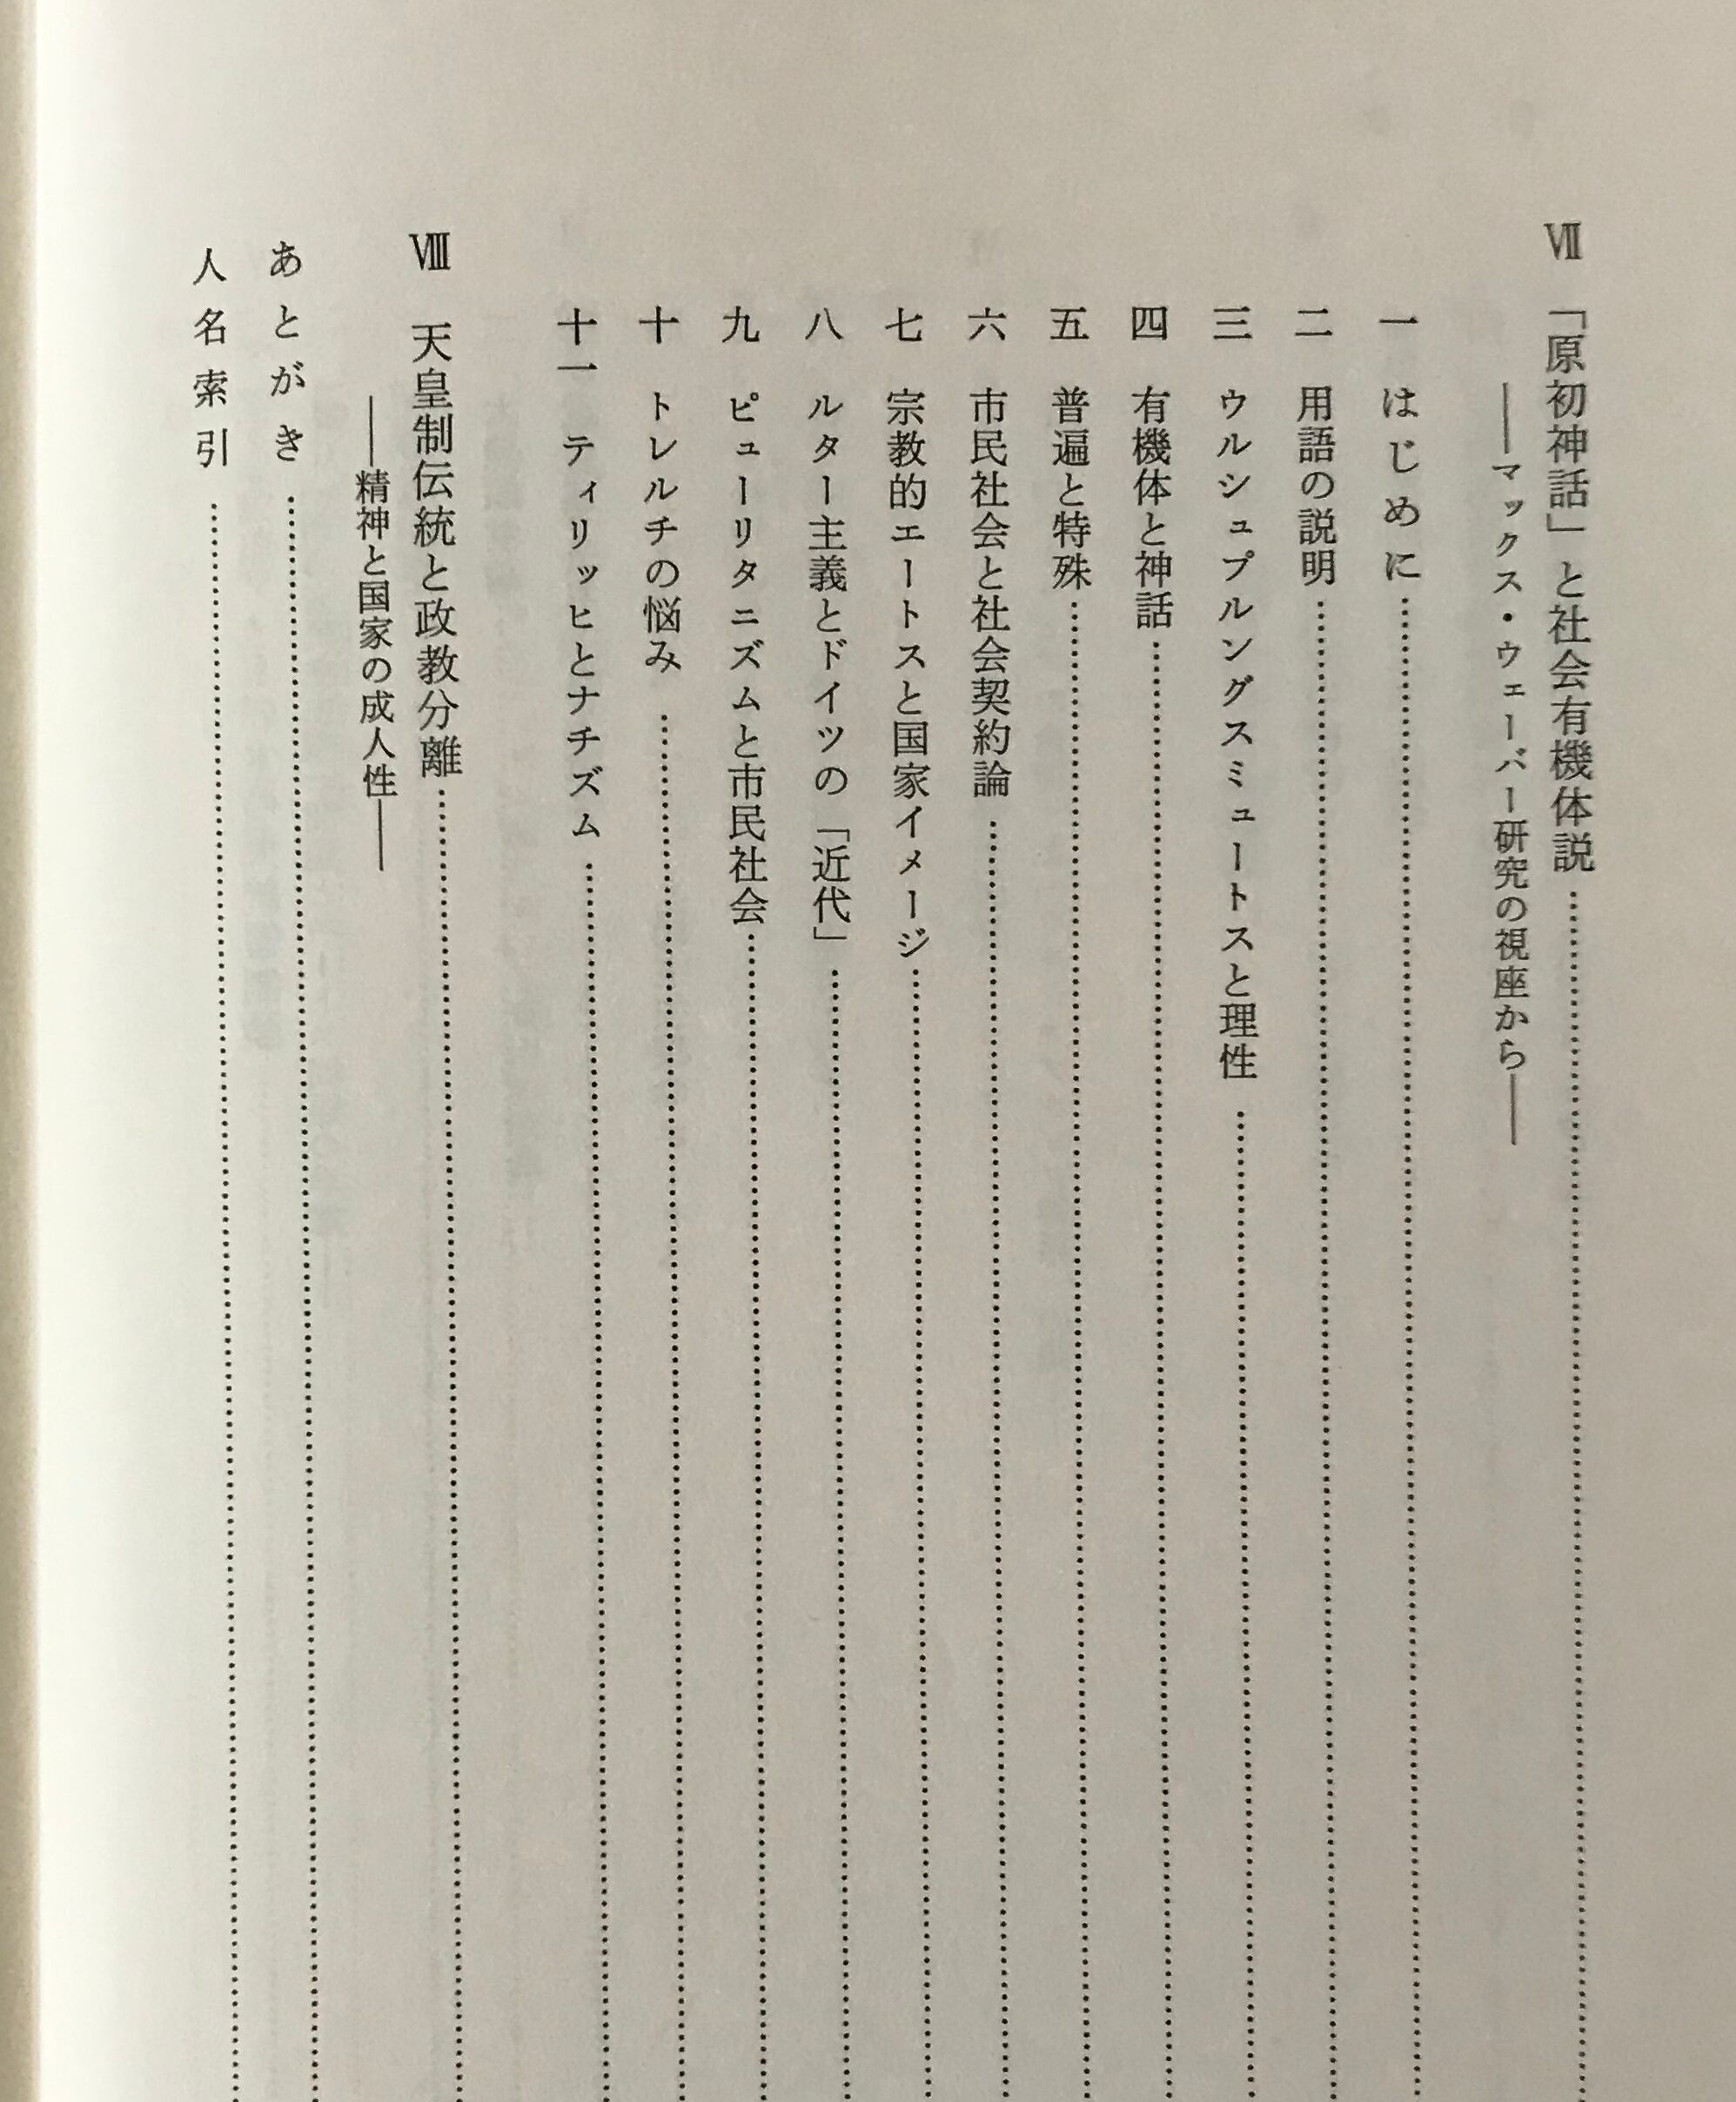 Ⅶ 「原初神話」と社会有機体説……
——マックス・ウェーバー研究の視座から——
一 はじめに……
二 用語の説明……
三 ウルシュプルングスミュートスと理性……
四 有機体と神話……
五 普遍と特殊……
六 市民社会と社会契約論……
七 宗教的エートスと国家イメージ……
八 ルター主義とドイツの「近代」……
九 ピューリタニズムと市民社会……
十 トレルチの悩み……
十一 ティリッヒとナチズム……
Ⅷ 天皇制伝統と政教分離……
——精神と国家の成人性——
あとがき……
人名索引……